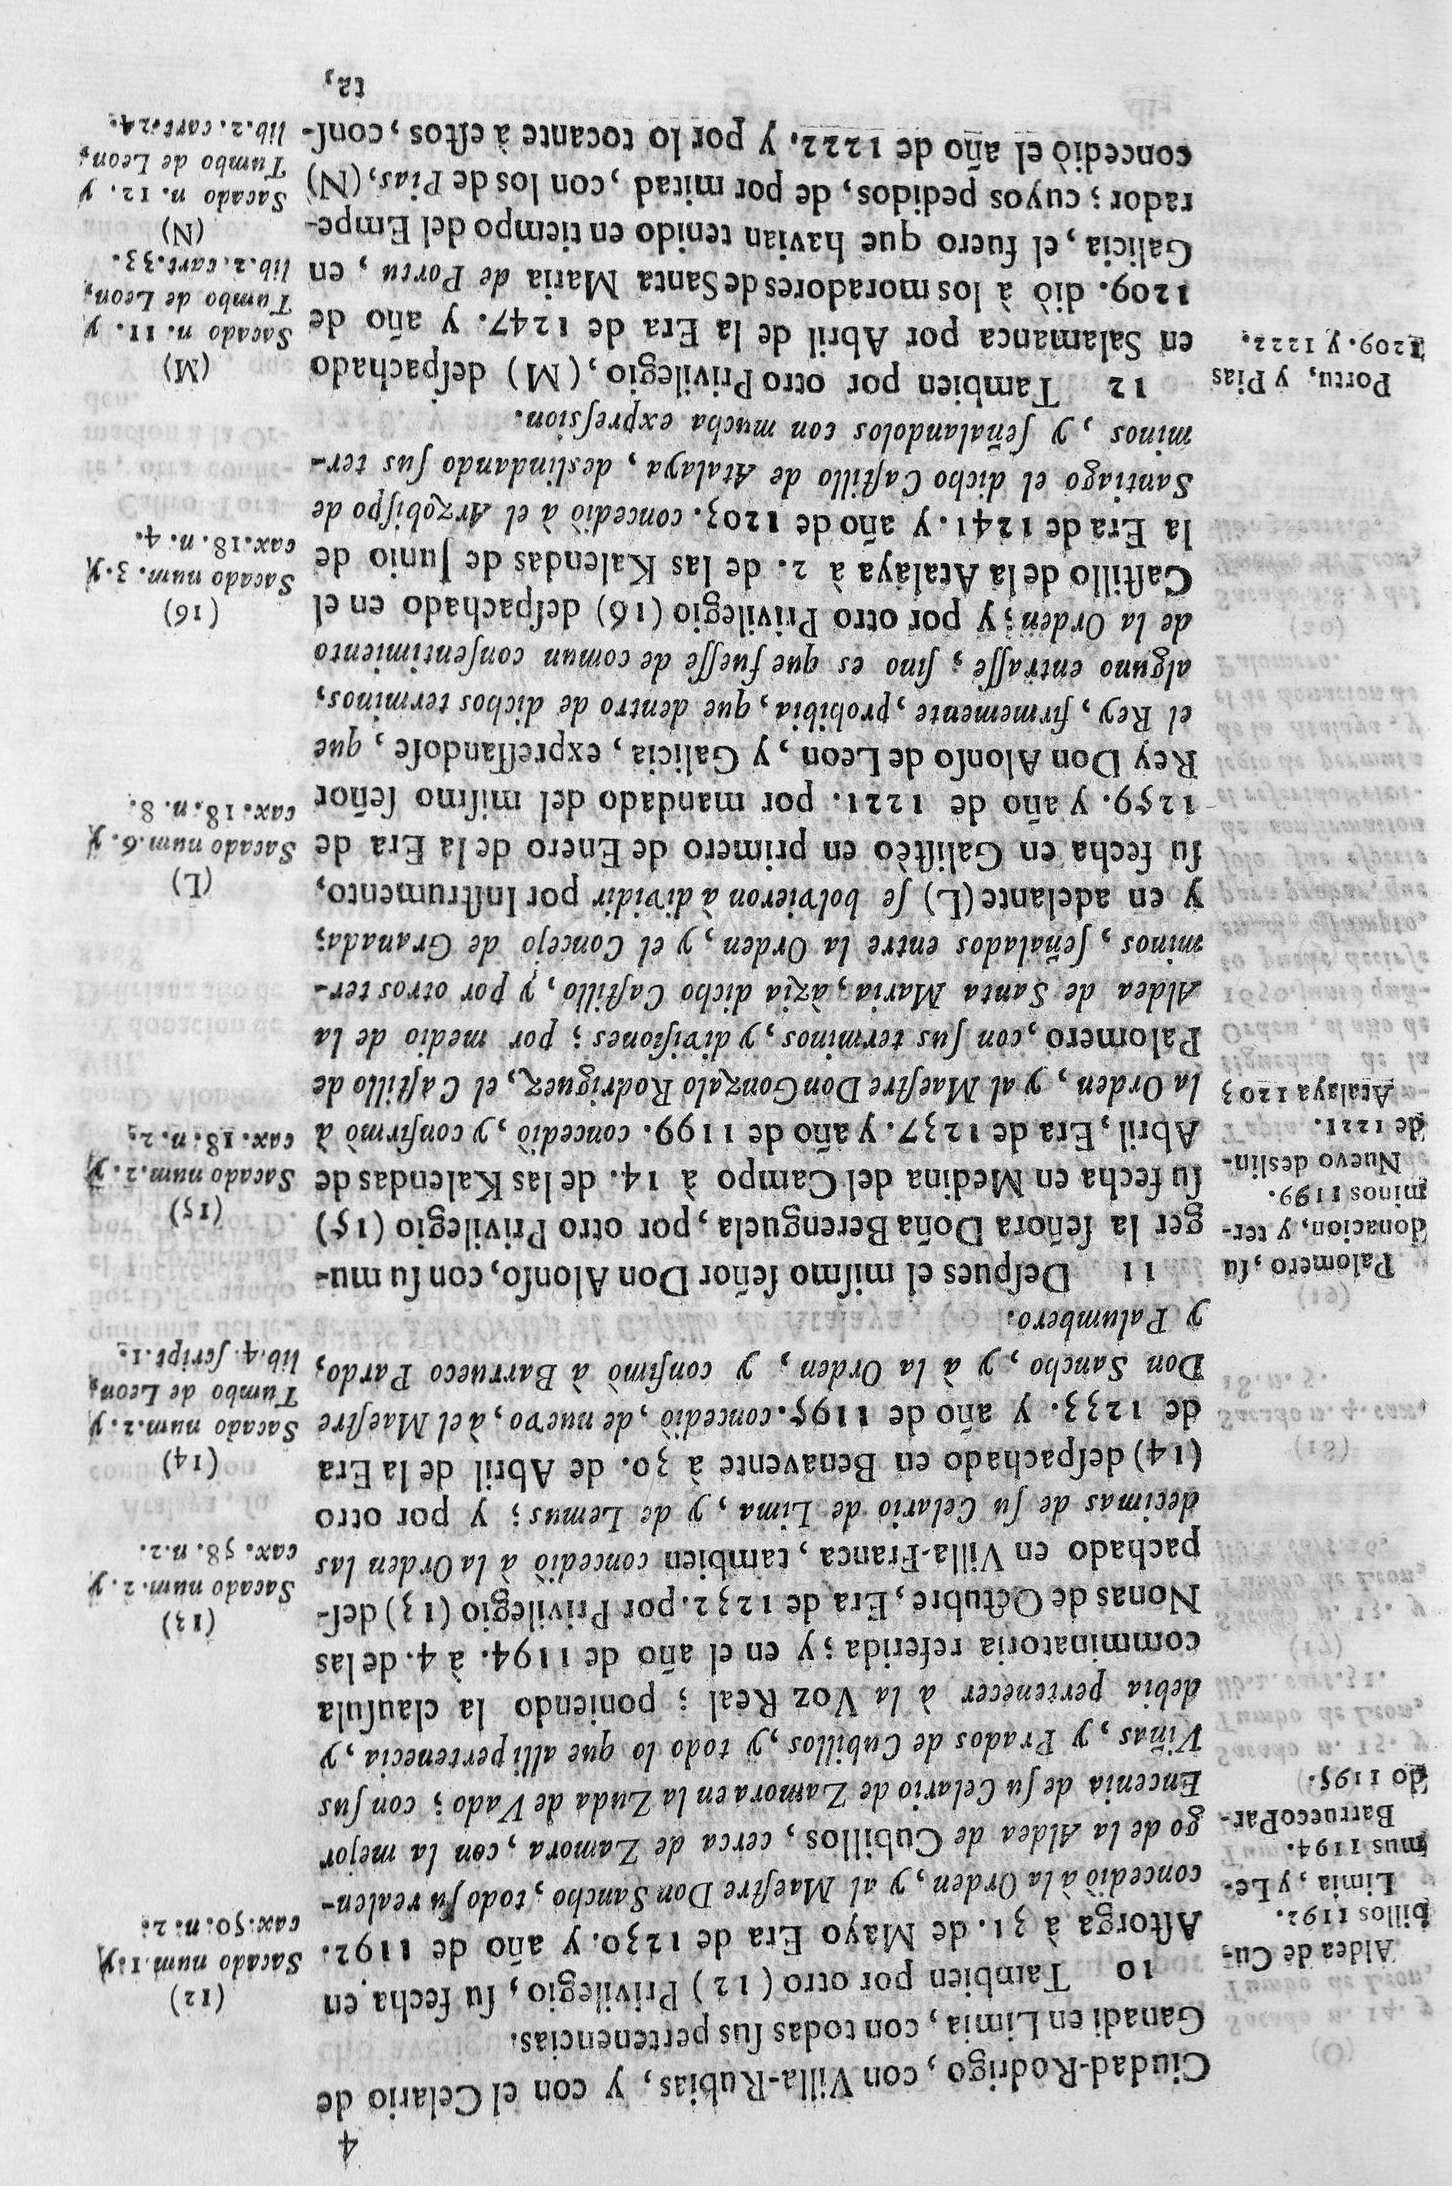 4
Ciudad-Rodrigo, con Villa-Rubias, y con el Celario de
Ganadi en Limia, con todas ſus pertenencias.
10 Tambien por otro (12) Privilegio, ſu fecha en
Aſtorga à 31. de Mayo Era de 1230. y año de 1192.
concediò à la Orden, y al Maeſtre Don Sancho, todo ſu realen-
go de la Aldea de Cubillos, cerca de Zamora, con la mejor
Encenia de ſu Celario de Zamora en la Zuda de Vado; con ſus
Viñas, y Prados de Cubillos, y todo lo que alli pertenecia, y
debia pertenecer à la Voz Real; poniendo la clauſula
comminatoria referida; y en el año de 1194. à 4. de las
Nonas de Octubre, Era de 1232. por Privilegio (13) deſ-
pachado en Villa-Franca, tambien concediò à la Orden las
decimas de ſu Celario de Lima, y de Lemus; y por otro
(14) deſpachado en Benavente à 30. de Abril de la Era
de 1233. y año de 1195. concediò, de nuevo, à el Maeſtre
Don Sancho, y à la Orden, y confimò à Barrueco Pardo,
y Palumbero.
11 Deſpues el miſmo ſeñor Don Alonſo, con ſu mu-
ger la ſeñora Doña Berenguela, por otro Privilegio (15)
ſu fecha en Medina del Campo à 14. de las Kalendas de
Abril, Era de 1237. y año de 1199. concediò, y confirmò à
la Orden, y al Maeſtre Don Gonzalo Rodriguez, el Caſtillo de
Palomero, con ſus terminos, y diviſiones; por medio de la
Aldea de Santa Maria, àzia dicho Caſtillo, y por otros ter-
minos, ſeñalados entre la Orden, y el Concejo de Granada;
y en adelante (L) ſe bolvieron à dividir por Inſtrumento,
ſu fecha en Galiſtèo en primero de Enero de la Era de
1259. y año de 1221. por mandado del miſmo ſeñor
Rey Don Alonſo de Leon, y Galicia, expreſſandoſe, que
el Rey, firmemente, prohibia, que dentro de dichos terminos,
alguno entraſſe, ſino es que fueſſe de comun conſentimiento
de la Orden; y por otro Privilegio (16) deſpachado en el
Caſtillo de la Atalaya à 2. de las Kalendas de Junio de
la Era de 1241. y año de 1203. concediò à el Arzobiſpo de
Santiago el dicho Caſtillo de Atalaya, deslindando ſus ter-
minos, y ſeñalandolos con mucha expreſsion.
12 Tambien por otro Privilegio, (M) deſpachado
en Salamanca por Abril de la Era de 1247. y año de
1209. diò à los moradores de Santa Maria de Portu, en
Galicia, el fuero que havian tenido en tiempo del Empe-
rador; cuyos pedidos, de por mitad, con los de Pias, (N)
concediò el año de 1222. y por lo tocante à eſtos, conſ-
ta,
Aldea de Cu-
billos 1192.
Limia, y Le-
mus 1194.
Barrueco Par-
do 1195.
Palomero, ſu
donacion, y ter-
minos 1199.
Nuevo deslin-
de 1221.
Atalaya 1203
Portu, y Pias
1209. y 1222.
(12)
Sacado num. 1. y
cax. 50. n. 2.
(13)
Sacado num. 2. y
cax. 58. n. 2.
(14)
Sacado num. 2. y
Tumbo de Leon,
lib. 4. ſcript. 1.
(15)
Sacado num. 2. y
cax. 18. n. 2.
(L)
Sacado num. 6. y
cax. 18. n. 8.
(16)
Sacado num. 3. y
cax. 18. n. 4.
(M)
Sacado n. 11. y
Tumbo de Leon,
lib. 2. cart. 33.
(N)
Sacado n. 12. y
Tumbo de Leon,
lib. 2. cart. 24.